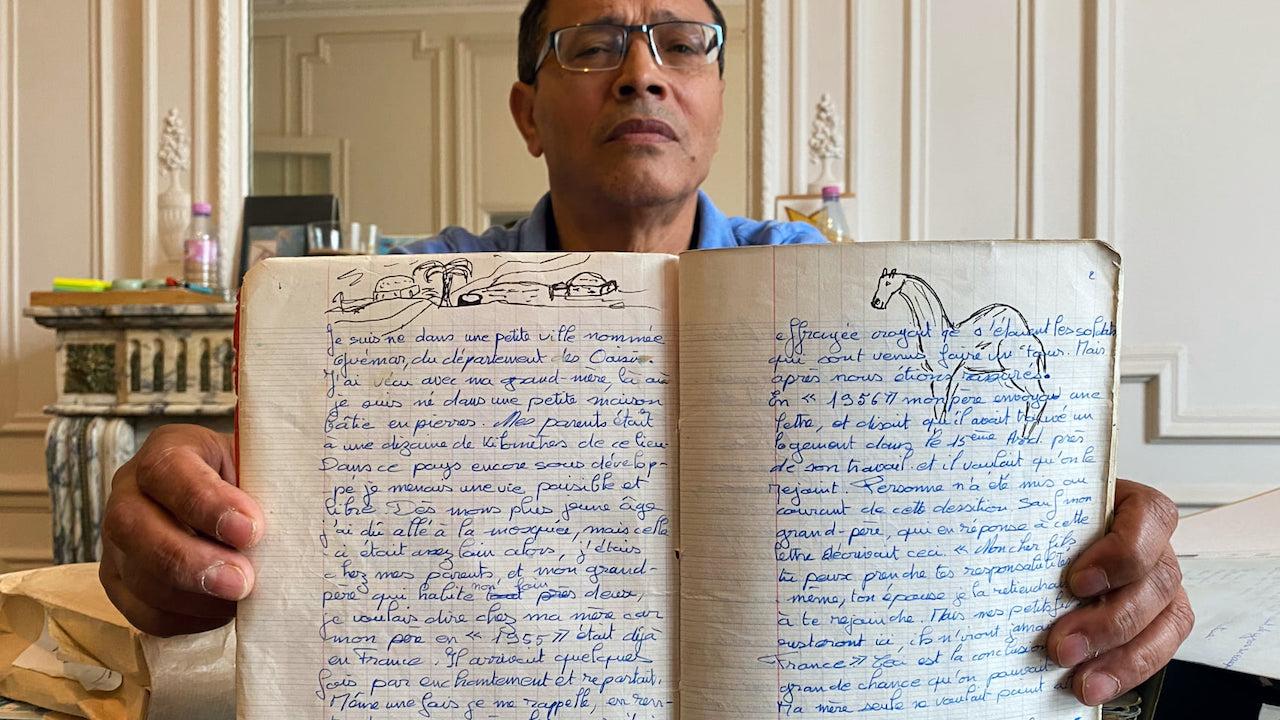 Je suis né dans une petite ville nommée
Guémar, du département des Oasis.
J'ai vécu avec ma grand-mère, là où
je suis né dans une petite maison
bâtie en pierres. Mes parents était
à une dizaine de kilomètres de ce lieu
Dans ce pays encore sous dévelop-
pé je menais une vie paisible et
libre. Dès mons plus jeune âge
j'ai dû allé à la mosquée, mais celle
ci était assez loin alors, j'étais
chez mes parents, et mon grand-
père qui habite non loin deux,
je voulais dire chez ma mère car
mon père en « 1955 » était déjà
en France. Il arrivait quelques
fois par enchantement et repartait.
Même une fois je me rappelle, en ren-
2
effrayée croyait que s'étaient les soldats
qui sont venus faire un tour. Mais
après nous étions rassurés.
En « 1956 » mon père envoyait une
lettre, et disait qu'il avait trouvé un
logement dans le 15ème Arrd, près
de son travail. et il voulait qu'on le
rejoint. Personne n'a été mis au
courant de cette dessition sauf mon
grand-père, qui en réponse à cette
lettre décrivait ceci. « Mon cher fils
tu peux prendre tes responsabilités
même, ton épouse je la retiendrai
à te rejoindre. Mais mes petits fils
resteront ici, ils n'iront jamais
France » Ceci est la conclusion
grande chance qu'on pouvait
Ma mère seule ne voulait point